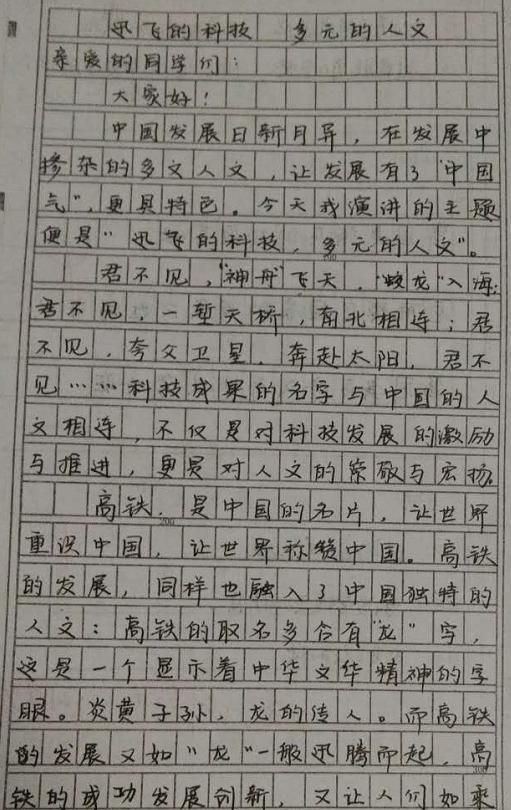 迅飞的科技 多元的人文
亲爱的同学们：
大家好！
中国发展日新月异，在发展中
掺杂的多文人文，让发展有了“中国
气”，更具特色。今天我演讲的主题
便是“迅飞的科技，多元的人文”。
君不见，“神舟”飞天，“蛟龙”入海；
君不见，一堑天桥，南北相连；君
不见，夸父卫星，奔赴太阳，君不
见……科技成果的名字与中国的人
文相连，不仅是对科技发展的激励
与推进，更是对人文的崇敬与宏扬。
高铁，是中国的名片，让世界
重识中国，让世界称赞中国。高铁
的发展，同样也融入了中国独特的
人文：高铁的取名多含有“龙”字，
这是一个显示着中华文华精神的字
眼。炎黄子孙，龙的传人。而高铁
的发展又如“龙”一般迅腾而起，高
铁的成功发展创新，又让人们如乘